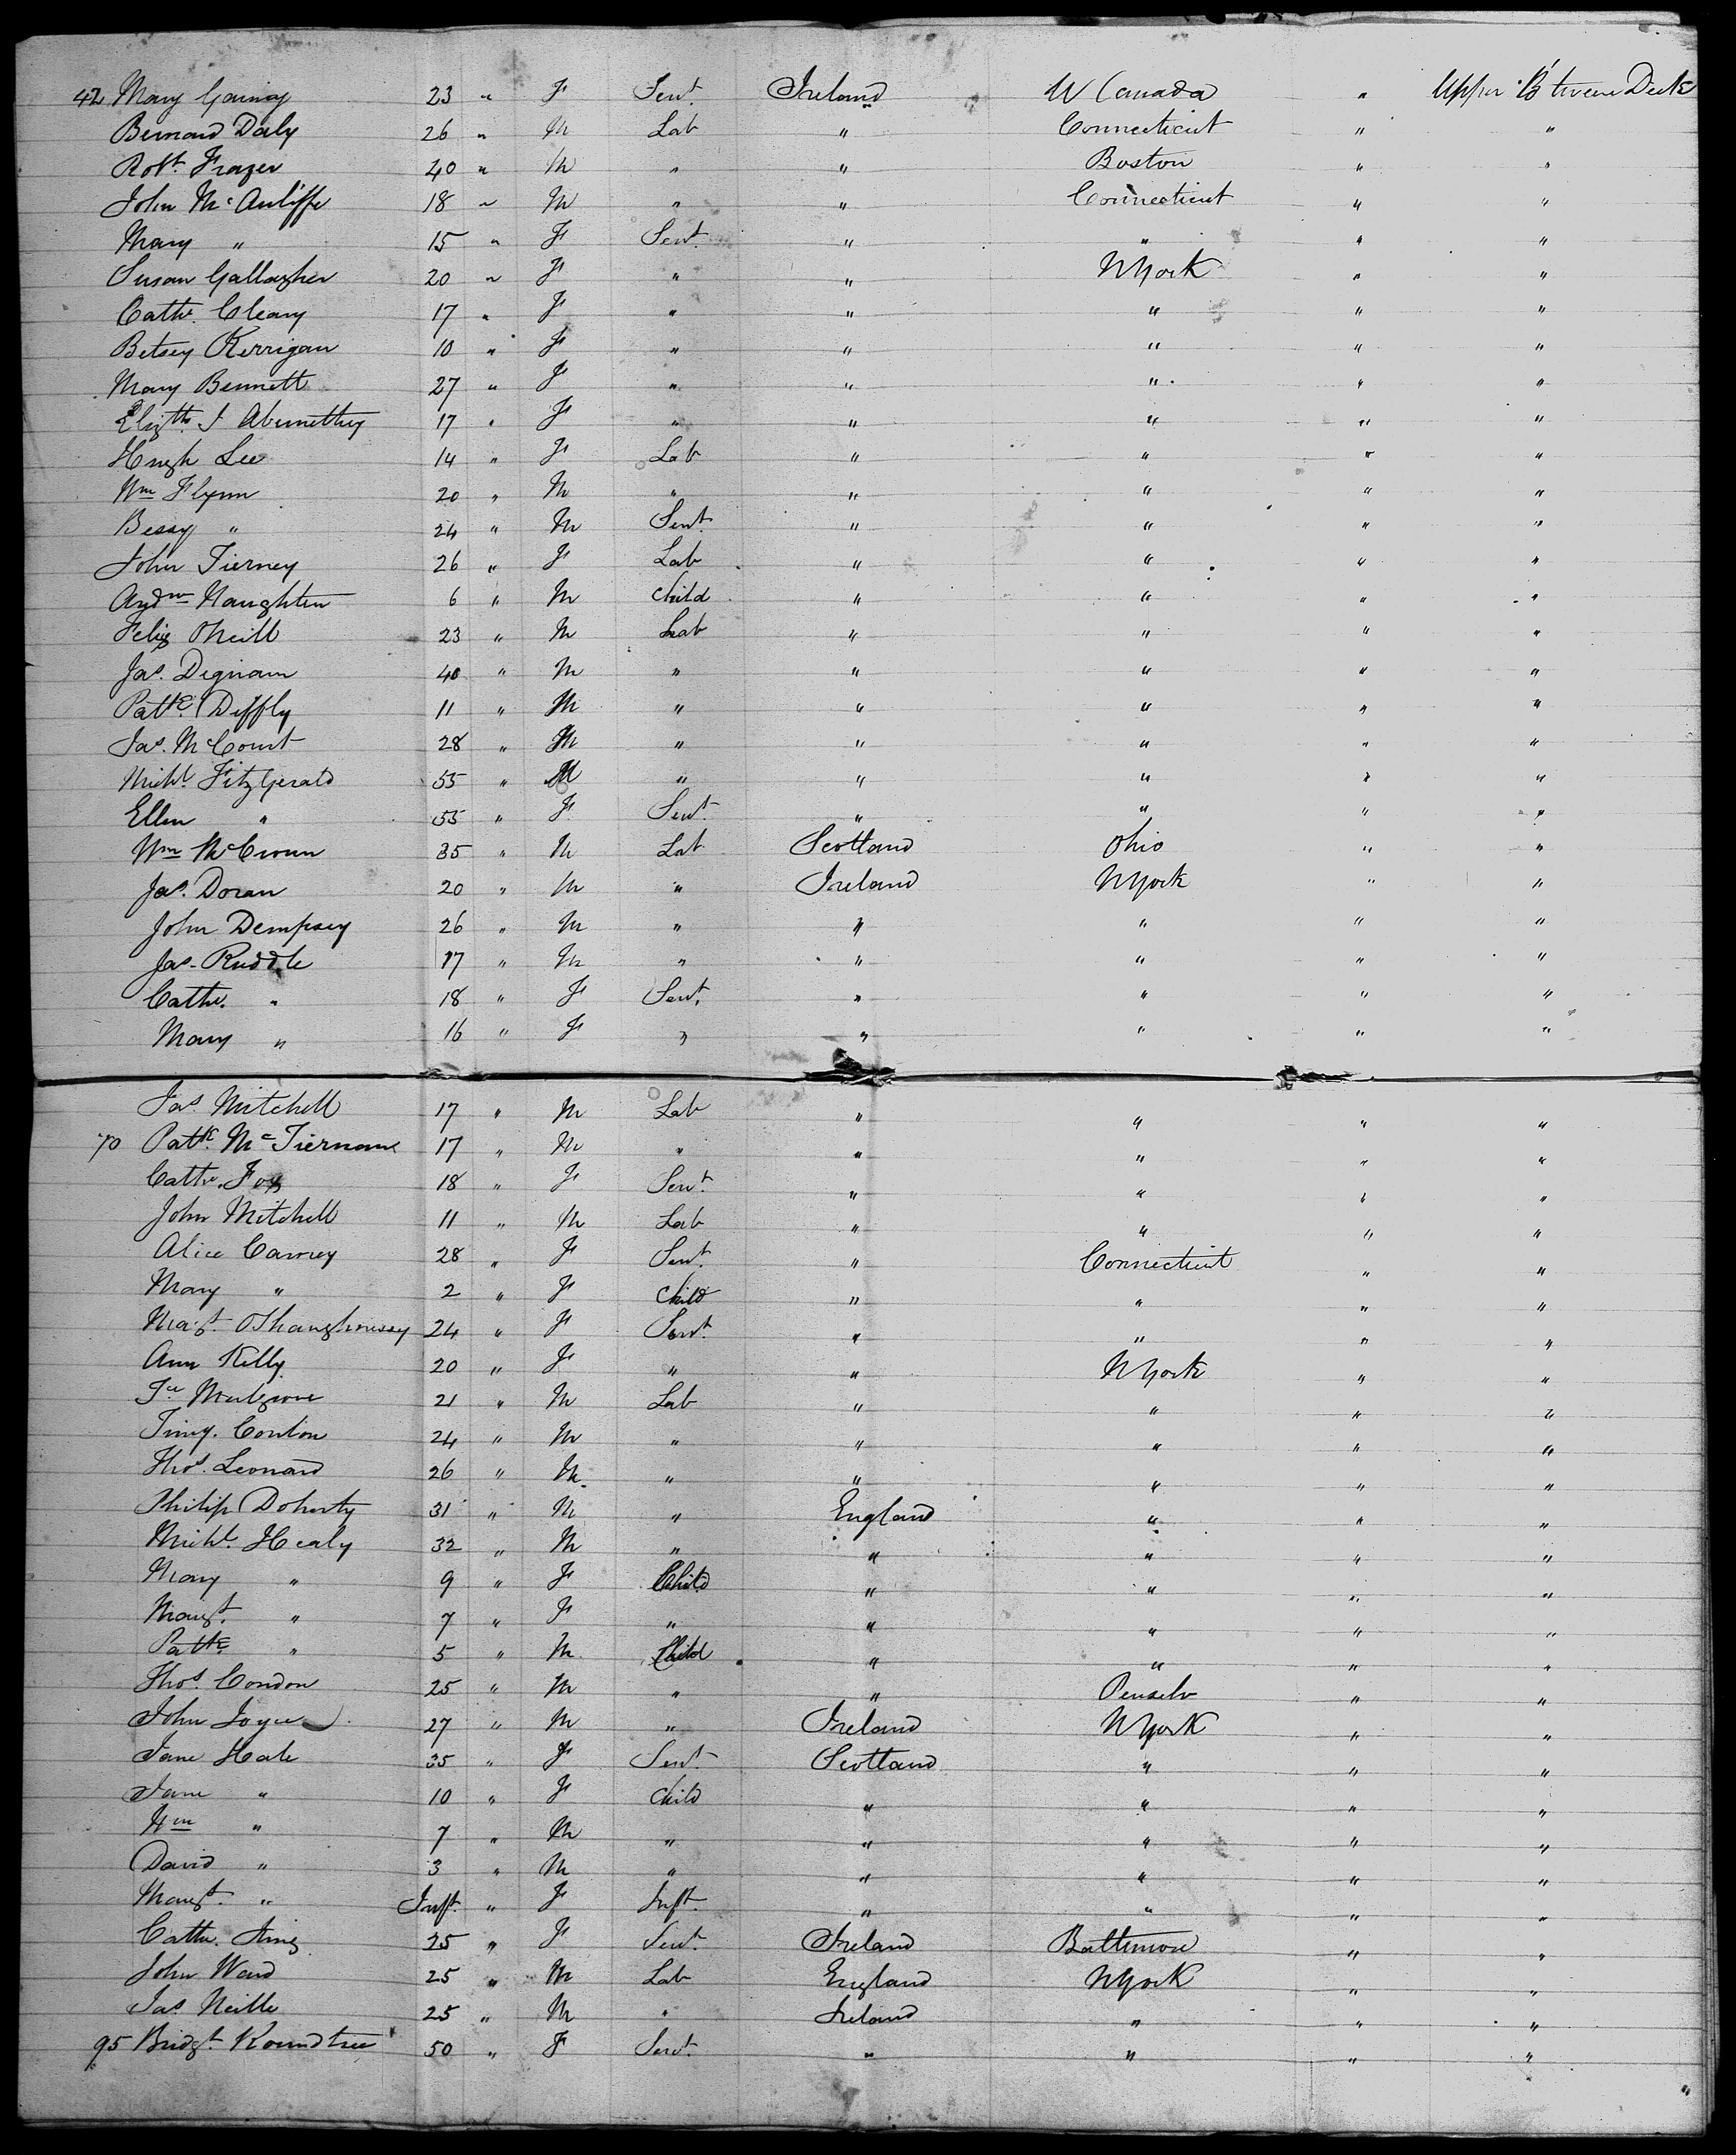 42 Mary Gainey 23 " F Servt. Ireland W Canada " Upper B'tween Deck
Bernard Daly 26 " M Lab " Connecticut " "
Robt. Frazer 40 " M " " Boston " "
John McAuliffe 18 " M " " Connecticut " "
Mary " 15 " F Servt. " " " "
Susan Gallagher 20 " F " " N York " "
Cathe. Cleary 17 " F " " " " "
Betsey Kerrigan 10 " F " " " " "
Mary Bennett 27 " F " " " " "
Elizth. J Abernethy 17 " F " " " " "
Hugh Lee 14 " F Lab " " " "
Wm Flynn 20 " M " " " " "
Bessy " 24 " M Servt. " " " "
John Tierney 26 " F Lab " " " "
Andw Naughten 6 " M Child " " " "
Felix ONeill 23 " M Lab " " " "
Jas. Dignam 40 " M " " " " "
Pattk. Diffly 11 " M " " " " "
Jas. McCourt 28 " M " " " " "
Michl. FitzGerald 55 " M " " " " "
Ellen " 55 " F Servt. " " " "
Wm McCrown 35 " M Lab Scotland Ohio " "
Jas. Doran 20 " M " Ireland N York " "
John Dempsey 26 " M " " " " "
Jas. Ruddle 17 " M " " " " "
Cathe. " 18 " F Servt. " " " "
Mary " 16 " F " " " " "
Jas. Mitchell 17 " M Lab " " " "
70 Pattk. McTiernan 17 " M " " " " "
Cathe. Fox 18 " F Servt. " " " "
John Mitchell 11 " M Lab " " " "
Alice Carney 28 " F Servt. " Connecticut " "
Mary " 2 " F Child " " " "
Magt. OShaughnessy 24 " F Servt. " " " "
Ann Kelly 20 " F " " N York " "
Mulgrove 21 " M Lab " " " "
Timy. Conlon 24 " M " " " " "
Thos. Leonard 26 " M " " " " "
Philip Doherty 31 " M " England " " "
Michl. Healy 32 " M " " " " "
Mary " 9 " F Child " " " "
Margt. " 7 " F " " " " "
Pattk. " 5 " M Child " " " "
Thos. Condon 25 " M " " Penselv " "
John Joyce 27 " M " Ireland N York " "
Jane Hale 35 " F Servt. Scotland " " "
Jane " 10 " F Child " " " "
Wm " 7 " M " " " " "
David " 3 " M " " " " "
Margt. " Inft. " F Inft. " " " "
Cathe. King 25 " F Servt. Ireland Baltimore " "
John Ward 25 " M Lab England N York " "
Jas. Neille 25 " M " Ireland " " "
95 Bridgt. Roundtree 50 " F Servt. " " " "